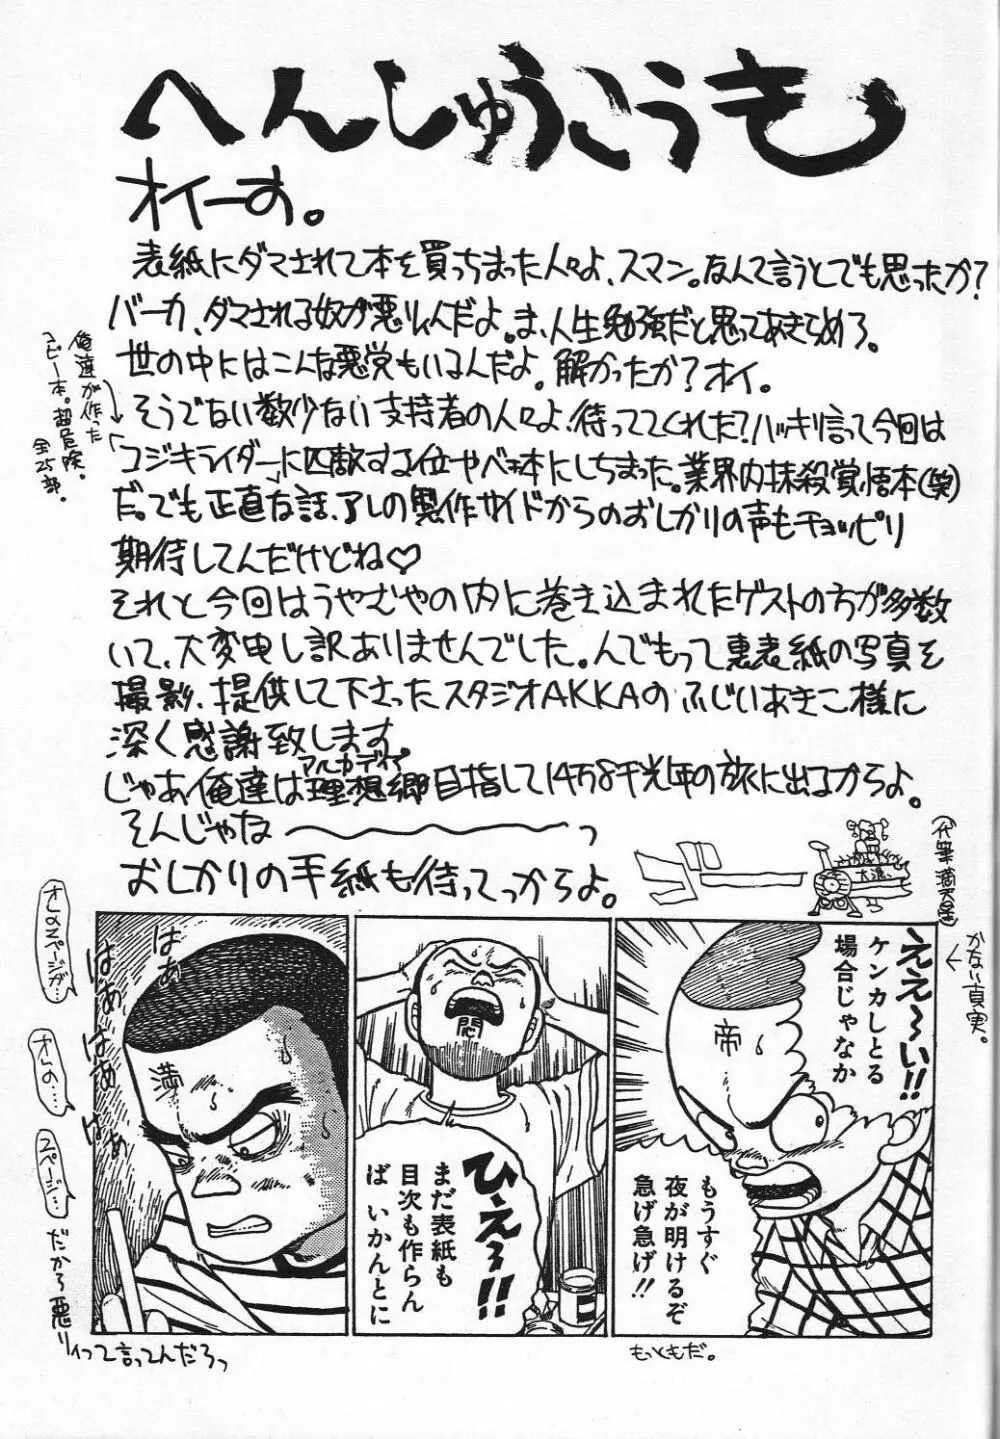 へんしゅうこうき
オイーす。
表紙にダマされて本を買っちまった人々よ、スマン。なんて言うとでも思ったか？
バーカ、ダマされる奴が悪りィんだよ。ま、人生勉強だと思ってあきらめろ。
世の中にはこんな悪党もいるんだよ。解かったか？オイ。
そうでない数少ない支持者の人々よ！待っててくれた？ハッキリ言って今回は
コジキライダーに匹敵する位やべェ本にしちまった。業界内抹殺覚悟本(笑)
だ。でも正直な話、アレの製作サイドからのおしかりの声もチョッピリ
期待してんだけどね♡
それと今回はうやむやの内に巻き込まれたゲストの方が多数
いて、大変申し訳ありませんでした。んでもって裏表紙の写真を
撮影、提供して下さったスタジオAKKAのふじいあきこ様に
深く感謝致します。
じゃあ俺達は理想郷目指して14万8千光年の旅に出るからよ。
アルカディア
そんじゃな〜〜〜っ
おしかりの手紙も待ってっからよ。
俺達が作った
コピー本。超危険。
全25部。
(代筆 満天星)
かない真実。
ええ〜い!!
ケンカしとる
場合じゃなか
帝
もうすぐ
夜が明けるぞ
急げ急げ!!
もっともだ。
悶
ひええ〜!!
まだ表紙も
目次も作らん
ば いかんとに
はぁ
はぁ
はぁ
はぁ
満
オレのスページが…
オレの…
スページ…
だから悪りィって言ってんだろっ